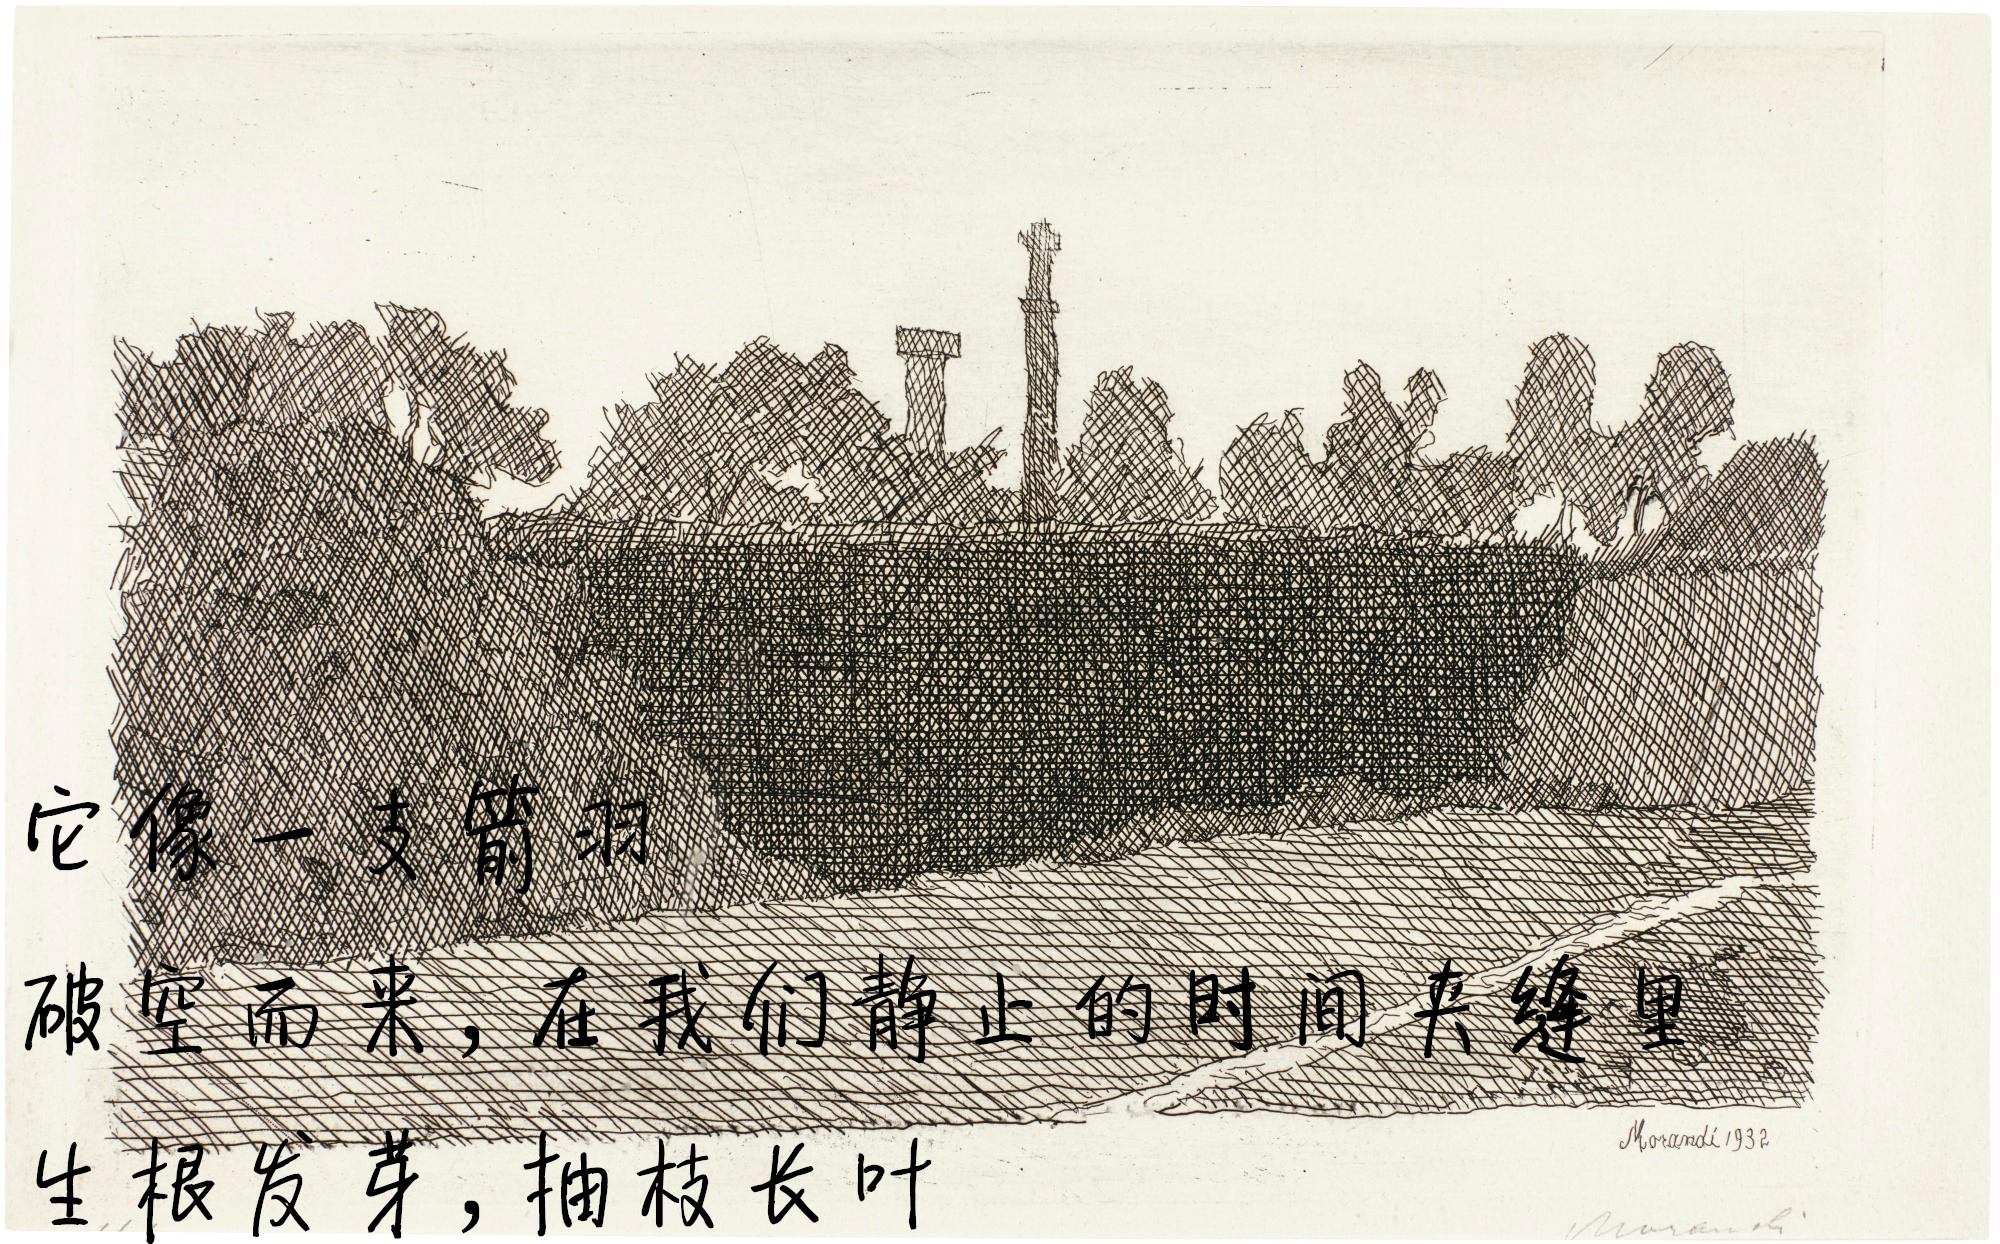 它像一支箭羽
破空而来,在我们静止的时间夹缝里
生根发芽,抽枝长叶
Morandi 1932
Morandi